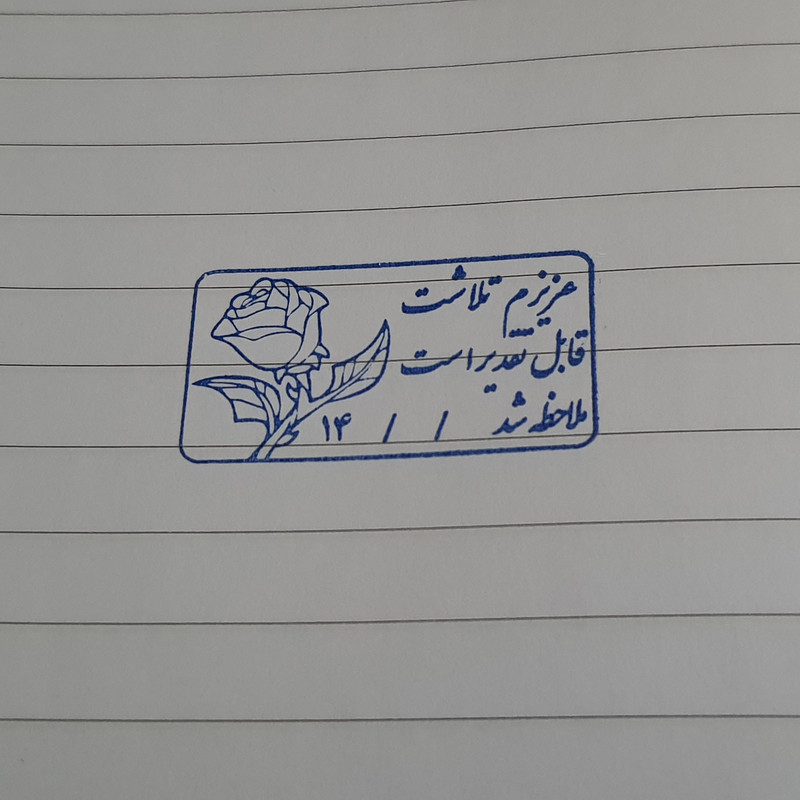 عزیزم تلاشت
قابل تقدیر است
ملاحظه شد / / ۱۴